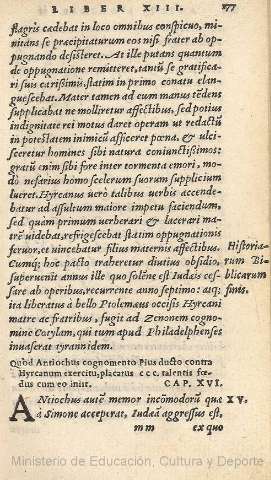 LIBER XIII. 177
flagris cædebat in loco omnibus conspicuo, mi-
nitans se præcipitaturum eos nisi frater ab op-
pugnando desisteret. At ille putans quantum
de oppugnatione remitteret, tantũ se gratifica-
ri suis carissimis, statim in primo conatu elan-
guescebat. Mater tamen ad eum manus tẽdens
supplicabat ne molliretur affectibus, sed potius
indignitate rei motus daret operam ut redactũ
in potestatem inimicũ afficeret pœna, & ulci-
sceretur homines sibi natura coniunctissimos:
gratũ enim sibi fore inter tormenta emori, mo-
dò nefarius homo scelerum suorum supplicium
lueret. Hyrcanus uerò talibus uerbis accende-
batur ad assultum maiore impetu faciendum,
sed quàm primum uerberari & lacerari ma-
trẽ uidebat, refrigescebat statim oppugnationis
feruor, et uincebatur filius maternis affectibus.
Cumq; hoc pacto traheretur diutius obsidio,
superuenit annus ille quo solẽne est Iudæis ces-
sare ab operibus, recurrente anno septimo: atq;
ita liberatus à bello Ptolemæus occisis Hyrcani
matre ac fratribus, fugit ad Zenonem cogno-
mine Cotylam, qui tum apud Philadelphenses
inuaserat tyrannidem.
Historia-
rum Bi-
blicarum
finis.
Quòd Antiochus cognomento Pius ducto contra
Hyrcanum exercitu, placatus ccc. talentis fœ-
dus cum eo iniit. CAP. XVI.
ANtiochus autẽ memor incõmodorũ quæ
à Simone acceperat, Iudæã aggressus est,
XV.
mm ex quo
Ministerio de Educación, Cultura y Deporte